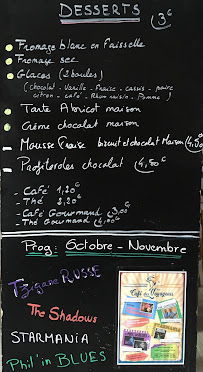 DESSERTS
3€
Fromage blanc en faisselle
Fromage sec
Glaces (2 boules)
(chocolat - Vanille - Fraise - cassis - poire
citron - café - Rhum raisin - Pomme)
Tarte Abricot maison
Crème chocolat maison
Mousse Fraise biscuit et chocolat Maison
Profiteroles chocolat 4,50€
- Café 1,20€
- Thé 2,20€
- Café Gourmand
- Thé Gourmand
Prog: Octobre - Novembre
Tzigane RUSSE
The Shadows
STARMANIA
Phil'in BLUES